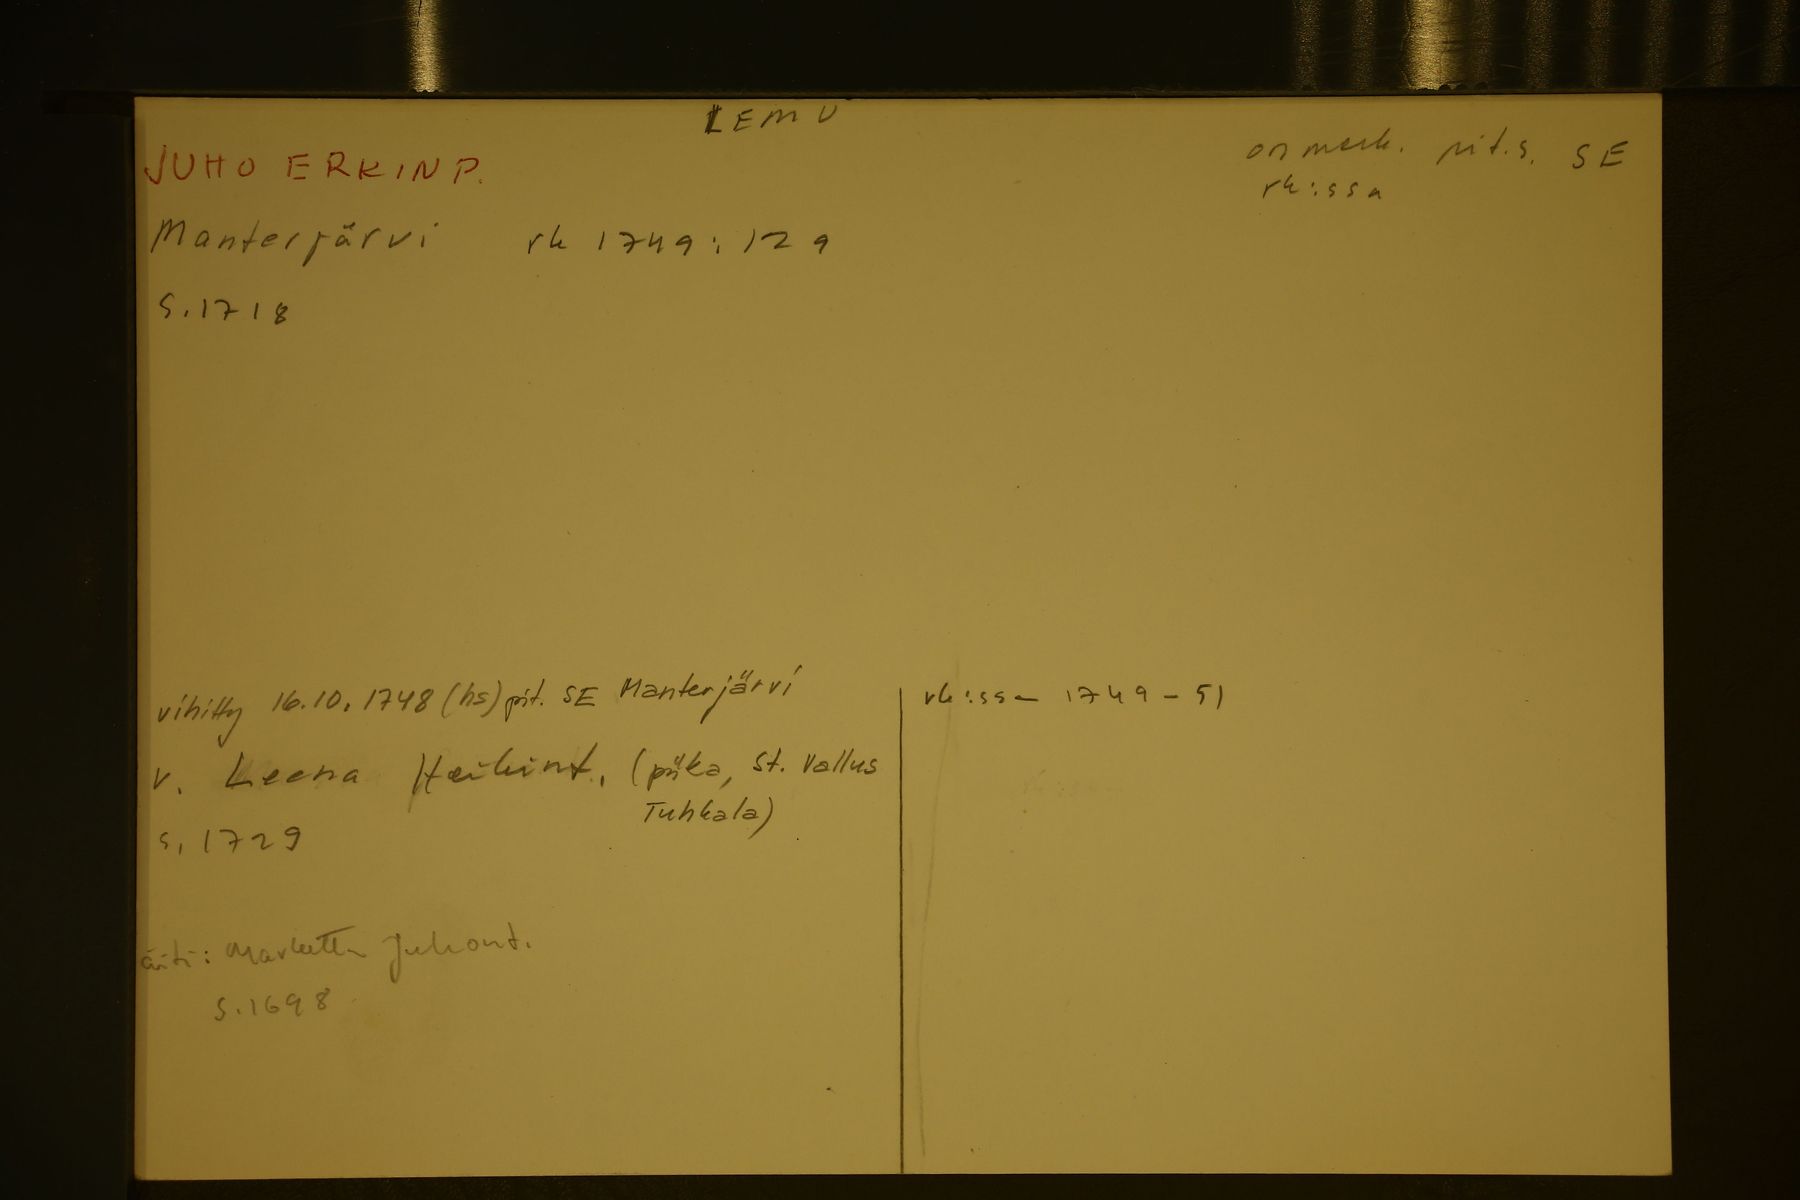 LEMU
JUHO ERKINP.
on merk. pit.s. SE
rk:ssa
Manterjärvi rk 1749:129
s.1718
vihitty 16.10.1748 (hs) pit. SE Manterjärvi
v. Leena Heikint. (piika, St. Vallus
Tuhkala)
s. 1729
rk:ssa 1749-51
äiti: Marketta Juhont.
s.1698